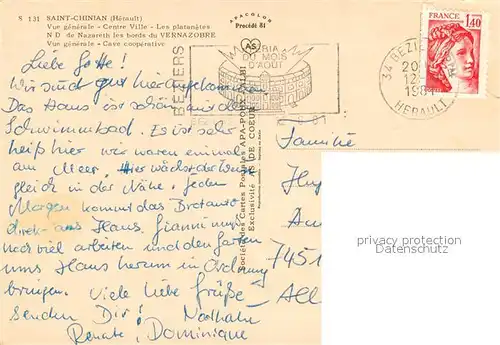 S 131 SAINT-CHINIAN (Hérault)
Vue générale - Centre Ville - Les platanètes
N D de Nazareth les bords du VERNAZOBRE
Vue générale - Cave coopérative
APACOLOR
Procédé 81
AS
BEZIERS
FERIA
DU MOIS
D'AOUT
34 BEZIERS
20
12
1981
HERAULT
1,40
Société des Cartes Postales APA-POUX - ALBI
Exclusivité AS DE COEUR
Liebe Lotte!
Wir sind gut hierhergekommen.
Das Haus ist schön, mit dem
Schwimmbad. Es ist sehr
heiß hier wir waren einmal
am Meer. Hier wächst der Wein
gleich in der Nähe. Jeden
Morgen kommt das Brotauto
direkt ans Haus. Gianni muß
noch viel arbeiten und den Garten
ums Haus herum in Ordnung
bringen. Viele liebe Grüße
senden Dir! Nathalie
Renate, Dominique
Familie
7451
All
protected property
Datenschutz